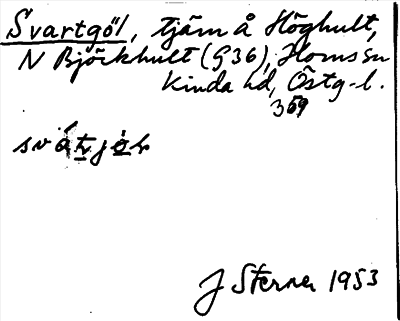 Svartgöl, tjärn å Höghult,
N Björkhult (G36), Horns sn
Kinda hd, Östg-l.
359
J Sterner 1953